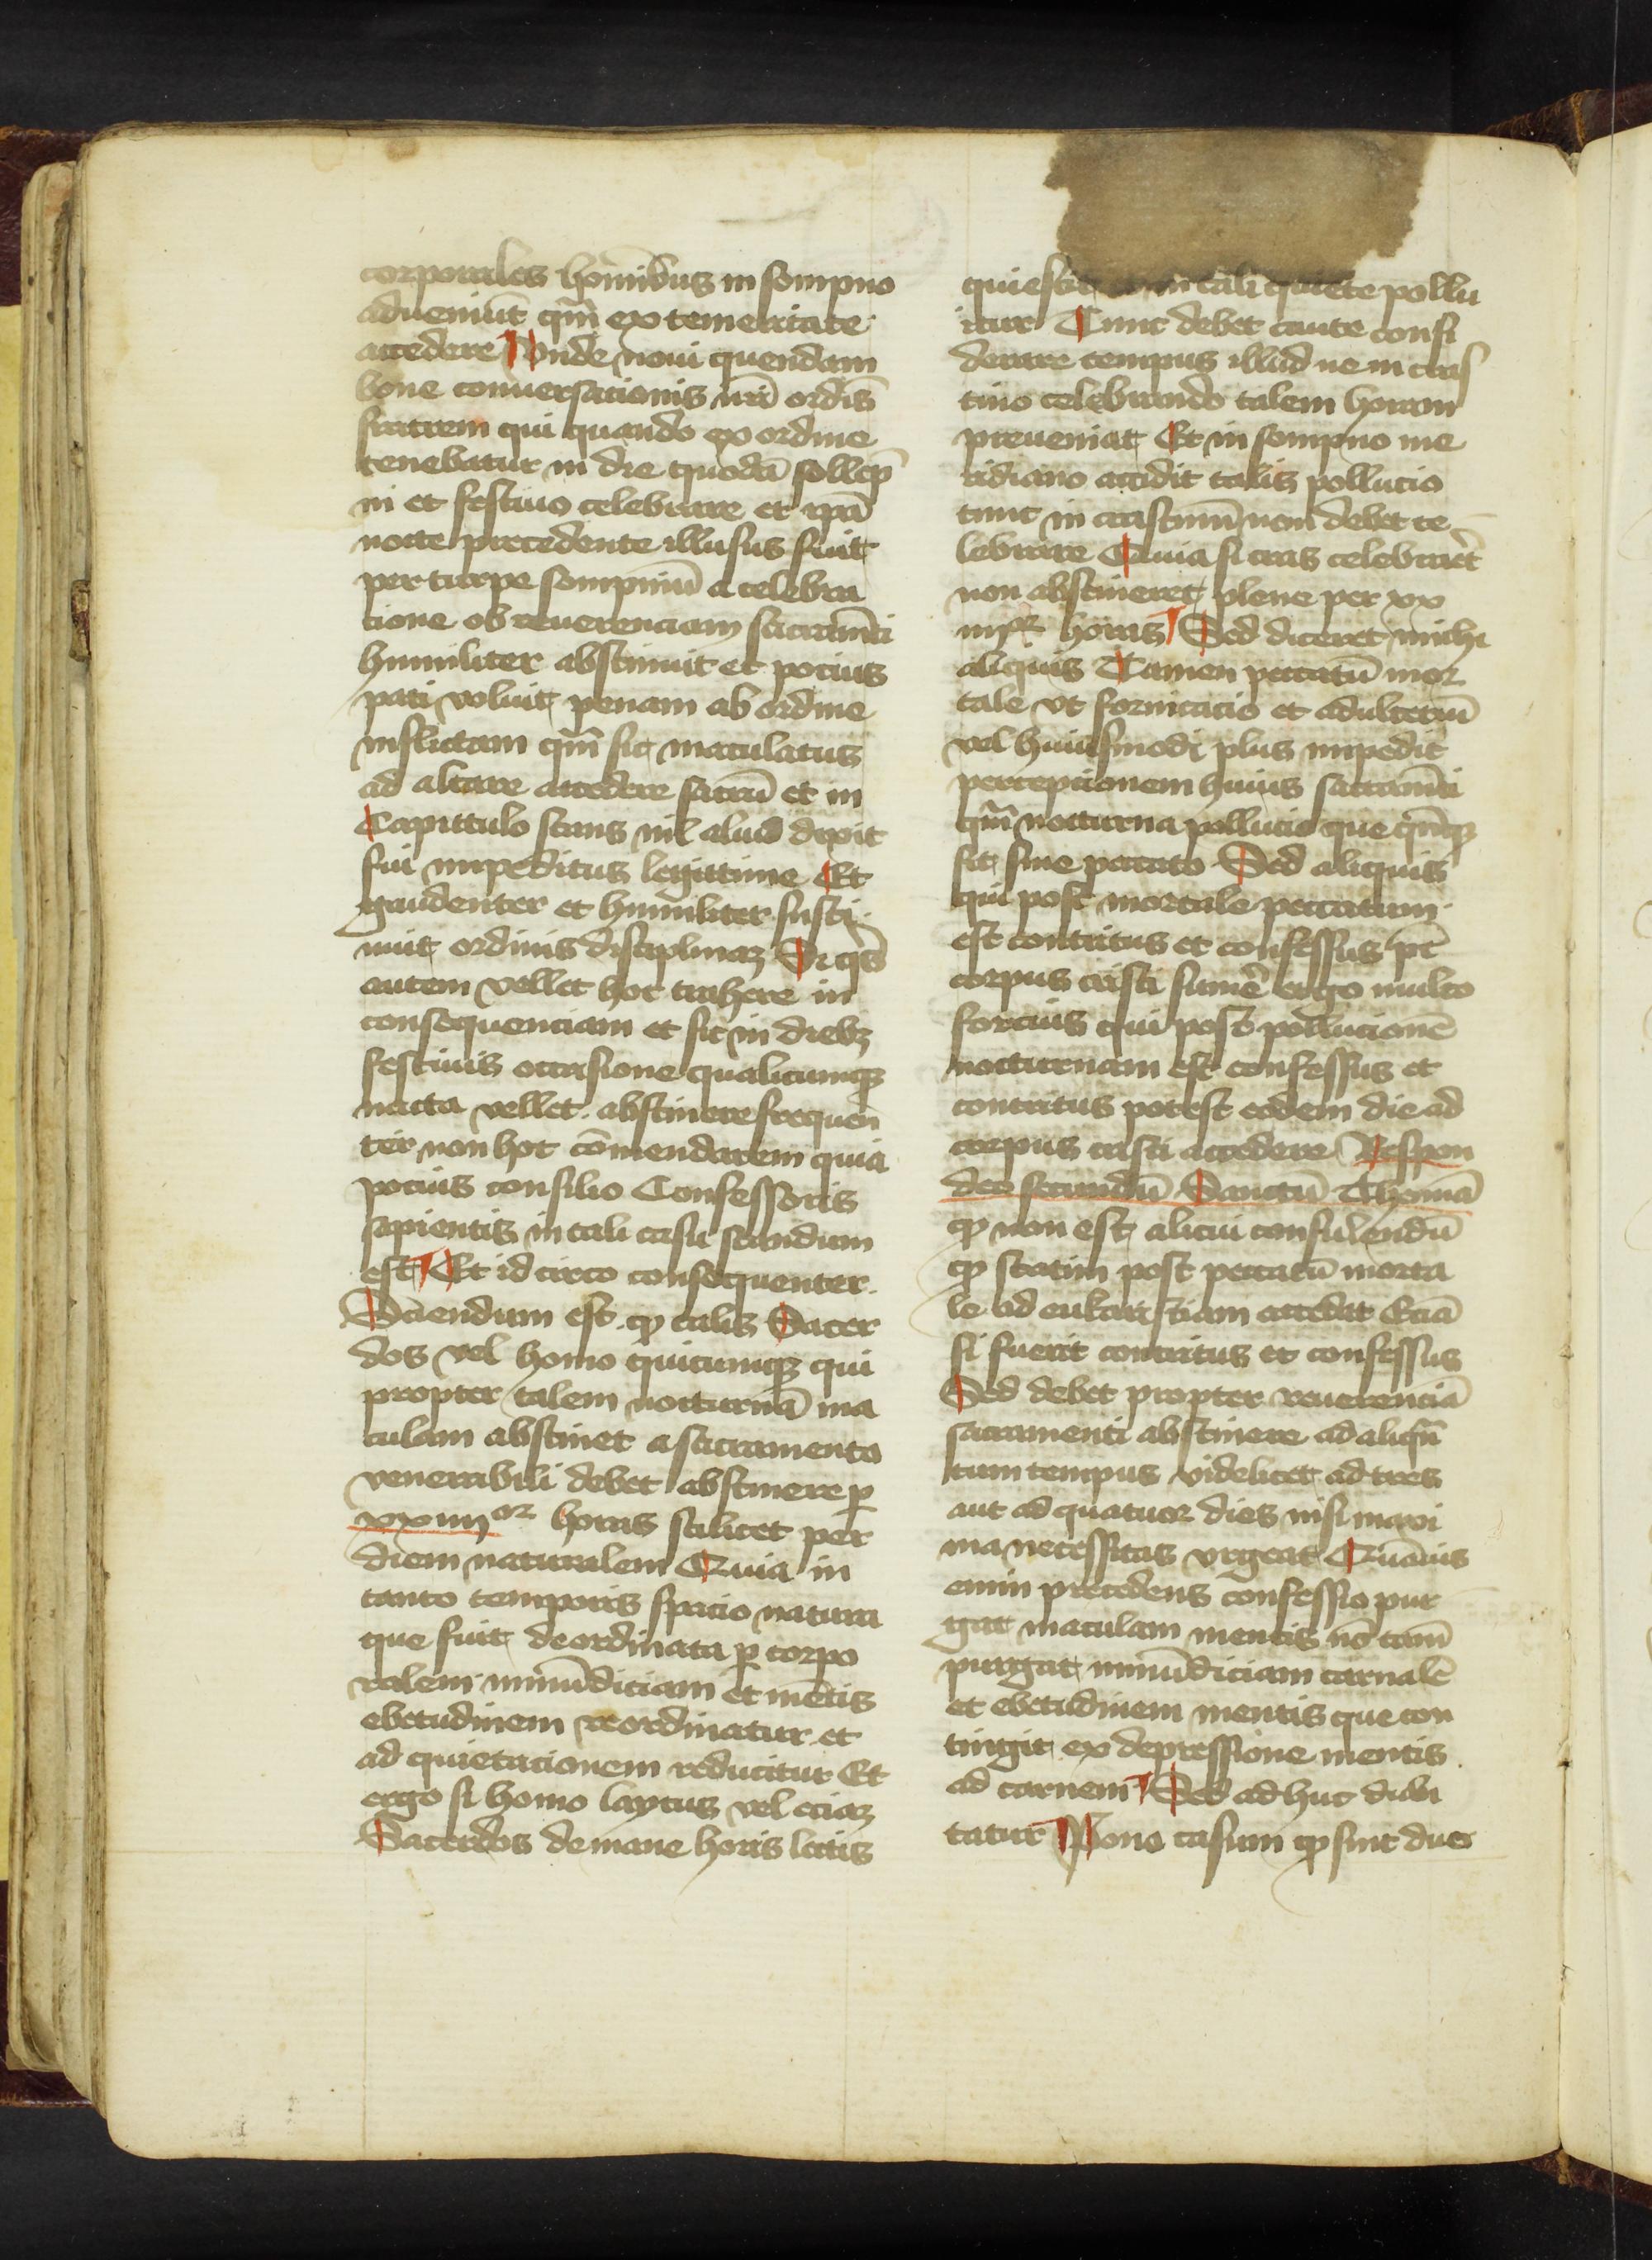 corporales hominibus in sompno
adueniūt qm̄ ex temeritate
accedere Vnde noui quendam
bone conuersacionis nrī ordīs
fratrem qui quando ex ordine
tenebatur in die quodā sollep̄
ni et festiuo celebrare et ipā
nocte precedente illusus fuit
per turpe sompniū a celebra
cione ob reuerenciam sacramēti
humiliter abstinuit et pocius
pati voluit penam ab ordine
inflictam qm̄ sic maculatus
ad altare accedere sacrū et in
Capittulo stans nil aliud dixit
fui impeditus legittime Et
gaudenter et humiliter susti
nuit ordinis disciplinaꝫ Si qs
autem vellet hoc trahere in
consequenciam et sic in diebꝫ
festiuis occasione qualicumqꝫ
nacta vellet abstinere frequen
ter non hoc cōmendarem quia
pocius consilio Confessoris
sapientis in tali casu standum
est Et idcirco consequenter
Sciendum est ꝙ talis Sacer
dos vel homo quicumqꝫ qui
propter talem nocturnā ma
culam abstinet a sacramento
venerabili debet abstinere ꝑ
xxiiii or horas scilicet per
diem naturalem Quia in
tanto temporis spacio natura
que fuit deordinata ꝑ corpo
ralem inmūdiciam et mētis
ebetudinem reordinatur et
ad quietacionem reducitur Et
ergo si homo laycus vel eciaꝫ
Sacerdos de mane horis lectis
quiescit in tali quiete pollu
itur Tunc debet caute consi
derare tempus illud ne in cras
tino celebrando talem horam
preueniat Et in sompno me
ridiano accidit talis pollucio
tunc in crastinū non debet ce
lebrare Quia si cras celebraret
non abstineret plene per xx
iiii or horas Sed diceret michi
aliquis Tamen peccatū mor
tale vt fornicacio et adulteriū
vel huiusmodi plus impedit
percepcionem huius sacramēti
qm̄ nocturna pollucio que qn̄qꝫ
fit sine peccato Sed aliquis
qui post mortale peccatum
est contritus et confessus pt̄
corpus cristi sumē ergo multo
forcius qui post pollucionē
nocturnam est confessus et
contritus potest eodem die ad
corpus cristi accedere Respon
deo secundū Sanctū Thomā
ꝙ non est alicui consulendū
ꝙ statim post peccatū morta
le ad eukaristiam accedat Eciā
si fuerit contritus et confessus
Sed debet propter reuerenciā
sacramenti abstinere ad aliqn̄
tum tempus videlicet ad tres
aut ad quatuor dies nisi maxi
ma necessitas vrgeat Quāuis
enim precedens confessio pur
gat maculam mentis nō tam̄
purgat inmūdiciam carnalē
et ebetudinem mentis que con
tingit ex depressione mentis
ad carnem Sed adhuc dubi
tatur Pono casum ꝙ sint duo